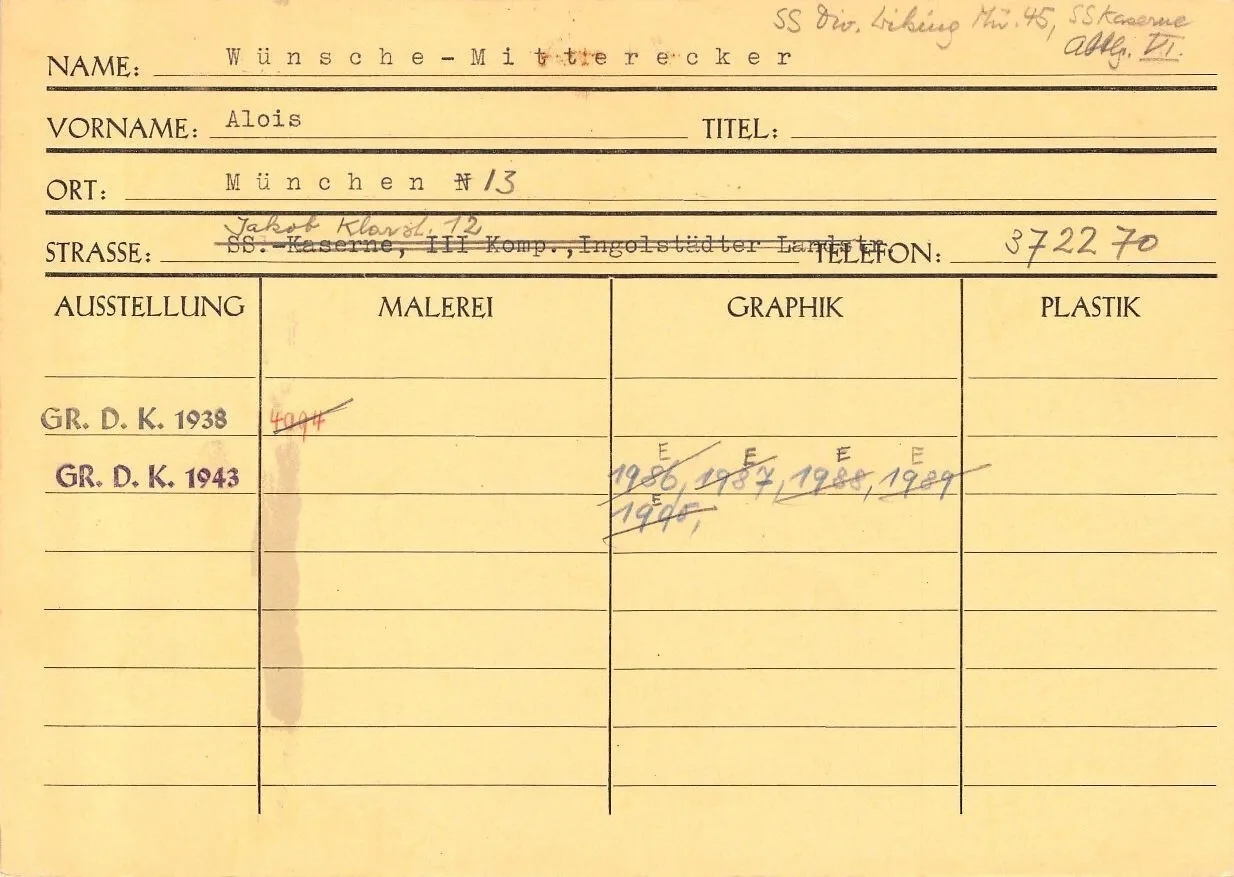 SS Div. Wiking Mü. 45, SS Kaserne
Abtlg. VI.
NAME: Wünsche-Mitterecker
VORNAME: Alois TITEL:
ORT: München N 13
Jakob Klarst. 12
STRASSE: SS.-Kaserne, III Komp., Ingolstädter Landstr. TELEFON: 372270
AUSSTELLUNG MALEREI GRAPHIK PLASTIK
GR. D. K. 1938 4094
E E E E
GR. D. K. 1943 1986, 1987, 1988, 1989
E